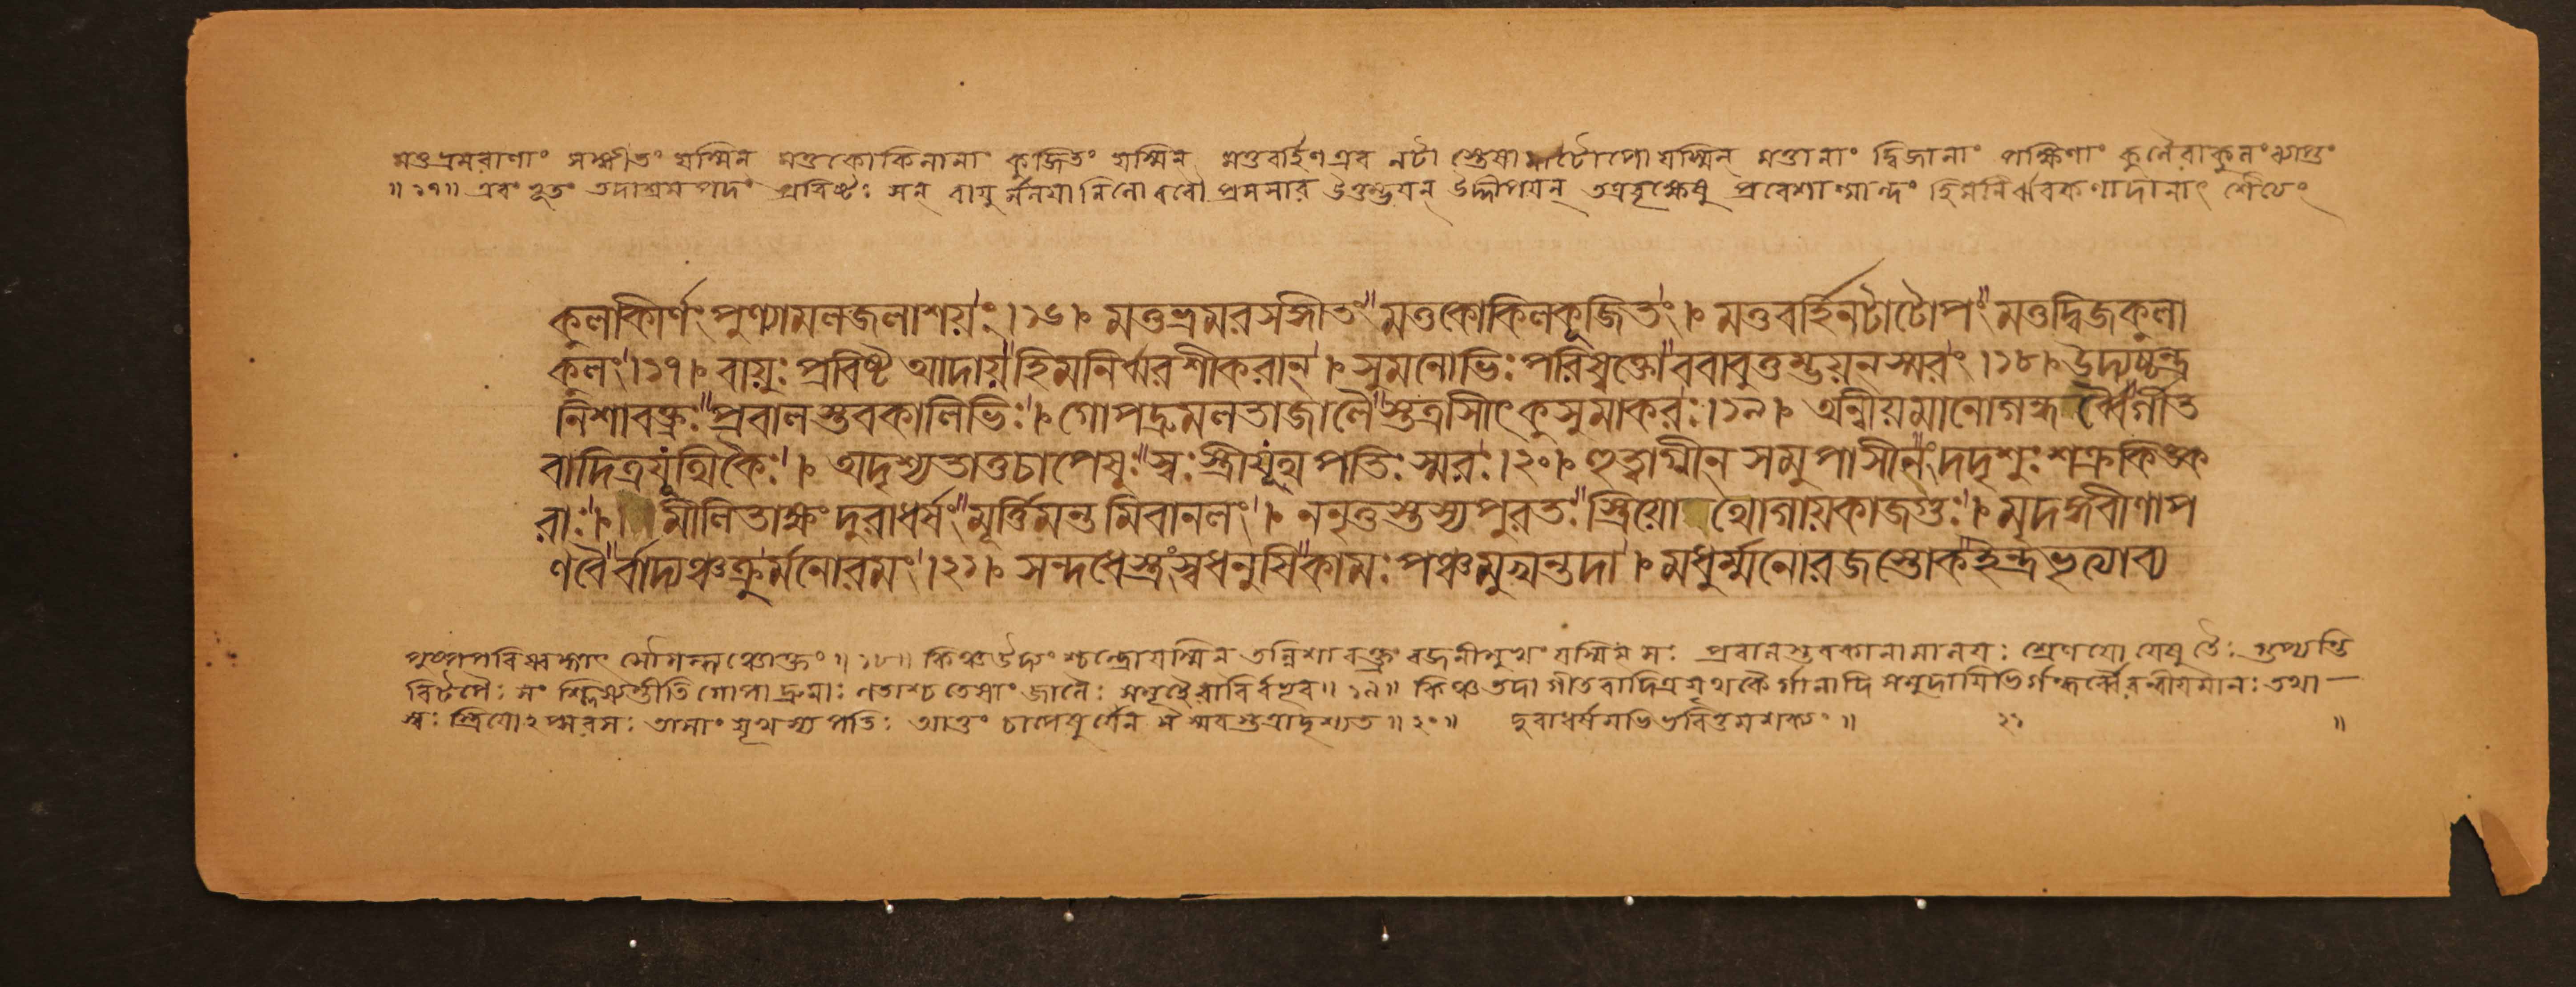 মত্তভ্রমরাণাং সঙ্গীতং যস্মিন্ মত্তকোকিলানাং কূজিতং যস্মিন্ মত্তবর্হিণ এব নটা স্তেষামাটোপো যস্মিন্ মত্তানাং দ্বিজানাং পক্ষিণাং কুলৈরাকুলং ব্যাপ্তং
॥ ১৭॥ এবং ভূতং তদাশ্রমপদং প্রবিষ্টঃ সন্ বায়ু র্মলয়ানিলো ববৌ প্রসসার উত্তম্ভয়ন্ উদ্দীপয়ন্ তত্রবৃক্ষেষু প্রবেশান্মান্দ্যং হিমনির্ঝরকণাদানাৎ শৈত্যং
কুলাকীর্ণং পুণ্যামলজলাশয়ং।১৬। মত্তভ্রমরসঙ্গীতং মত্তকোকিলকূজিতং। মত্তবর্হিনটাটোপং মত্তদ্বিজকুলা
কুলং।১৭। বায়ুঃ প্রবিষ্ট আদায় হিমনির্ঝরশীকরান্। সুমনোভিঃ পরিষ্বক্তো ববাবুত্তম্ভয়ন্স্মরং।১৮। উদ্যচ্চন্দ্র
নিশাবক্ত্রঃ প্রবালস্তবকালিভিঃ। গোপদ্রুমলতাজালৈ স্তত্রাসীৎ কুসুমাকরঃ।১৯। অন্বীয়মানোগন্ধর্ব্বৈর্গীত
বাদিত্রযূথিকৈঃ। অদৃশ্যতাত্তচাপেষুঃ স্বঃস্ত্রীযূথপতিঃ স্মরঃ।২০। হুত্বাগ্নীন সমুপাসীনং দদৃশুঃ শক্রকিঙ্ক
রাঃ। মীলিতাক্ষং দুরাধর্ষং মূর্ত্তিমন্ত মিবানলং। ননৃতুস্তস্যপুরতঃ স্ত্রিয়ো থোগায়কাজগুঃ। মৃদঙ্গবীণাপ
ণবৈ র্বাদ্যঞ্চক্রুর্মনোরমং।২১। সন্দধেস্ত্রং স্বধনুষি কামঃ পঞ্চমুখন্তদা। মধুর্ম্মনোরজস্তোক ইন্দ্রভৃত্যাব্য
পুষ্পপরিষ্বঙ্গাৎ সৌগন্ধ্যঞ্চোক্তং ॥ ১৮॥ কিঞ্চ উদ্যং শ্চন্দ্রো যস্মিন তন্নিশাবক্ত্রং রজনীমুখং যস্মিন্ সঃ প্রবালস্তবকানামালয়ঃ শ্রেণয়ো যেষু তৈঃ গুপ্যন্তি
বিটপৈঃ সং শ্লিষ্যন্তীতি গোপা দ্রুমাঃ লতাশ্চ তেষাং জালৈঃ রাবির্বভূব॥ ১৯॥ কিঞ্চ তদা গীতবাদিত্রযূথকৈ র্গানাদি সমুদায়িভির্গন্ধর্ব্বৈরন্বীয়মানঃ তথা—
স্বঃ স্ত্রিয়োঽপ্সরসঃ তাসাং যূথস্য পতিঃ আত্তং চাপেষুর্যেন স স্মরস্তত্রাদৃশ্যত॥ ২০॥ দুরাধর্ষমভিভবিতুমশক্যং ॥ ২১ ॥